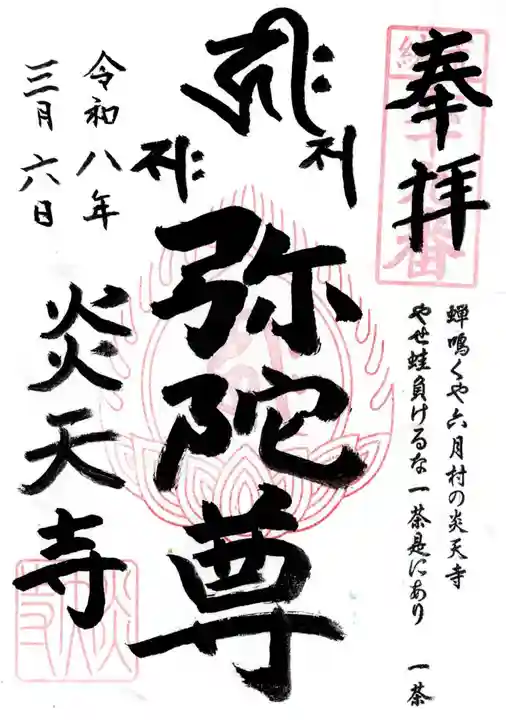 奉拝
蝉鳴くや六月村の炎天寺
やせ蛙負けるな一茶是にあり 一茶
弥陀尊
炎天寺
令和八年
三月六日